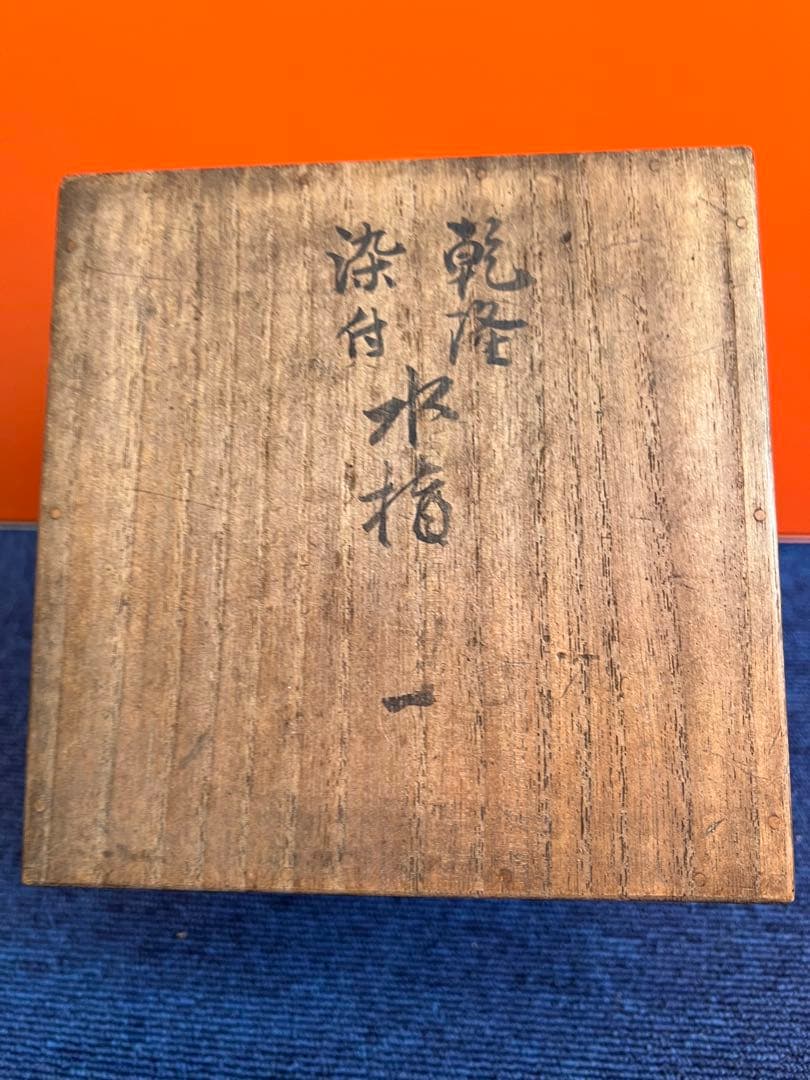 乾隆
染付
水指
一